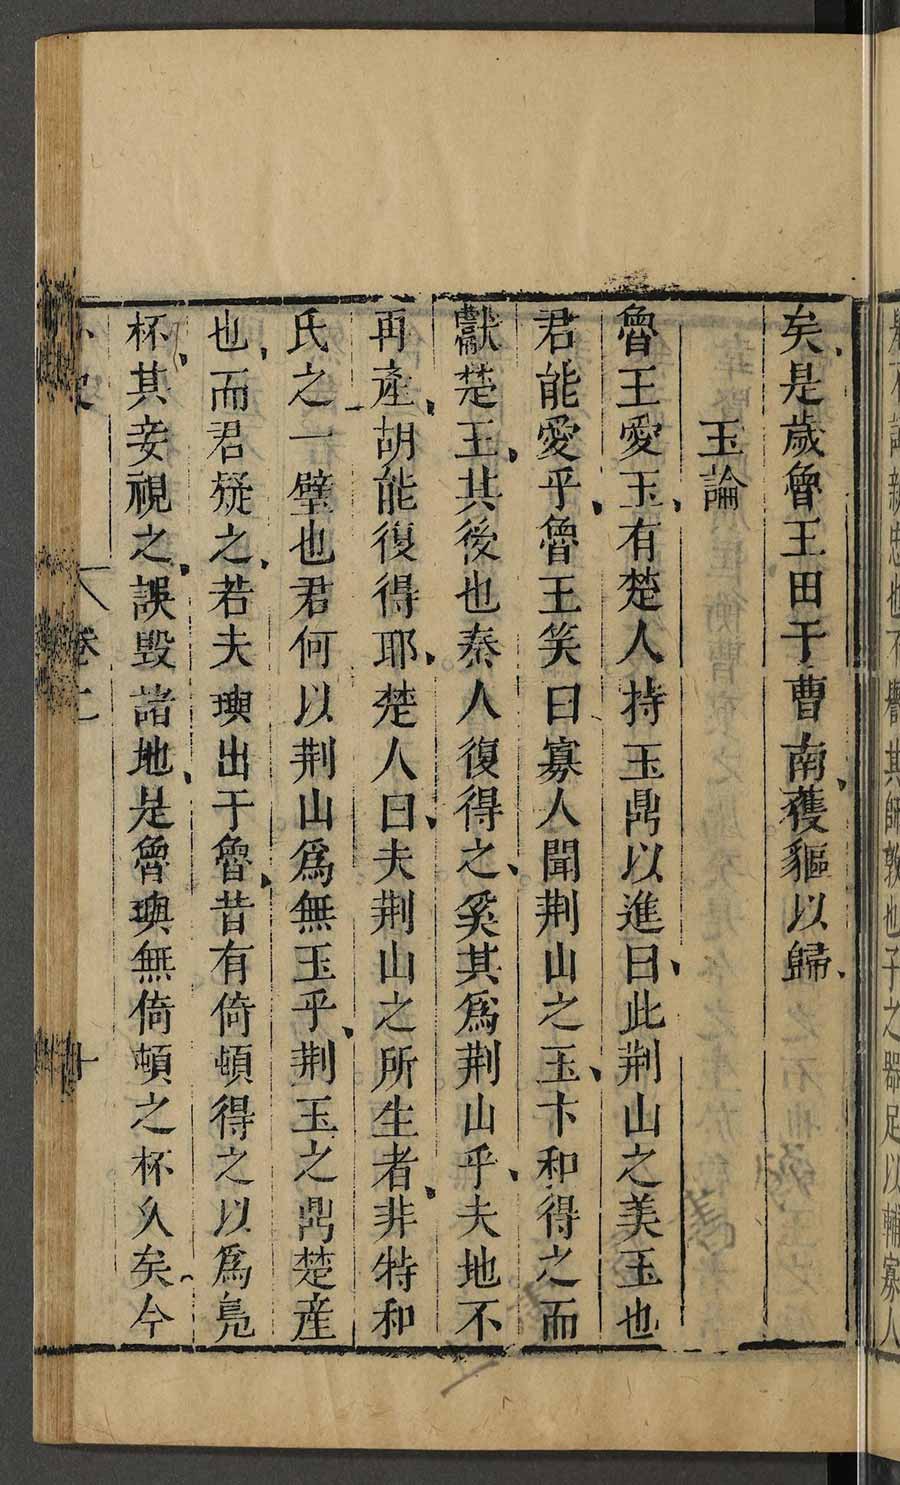 矣是歲魯王田于曹南獲貙以歸
玉論
魯王愛玉有楚人持玉鼎以進曰此荆山之美玉也
君能愛乎魯王笑曰寡人聞荆山之玉卞和得之而
獻楚王其後也秦人復得之奚其爲荆山乎夫地不
再產胡能復得耶楚人曰夫荆山之所生者非特和
氏之一璧也君何以荆山爲無玉乎荆玉之鼎楚產
也而君疑之若夫璵出于魯昔有倚頓得之以爲鳬
杯其妾視之誤毀諸地是魯璵無倚頓之杯久矣今
卷二
十